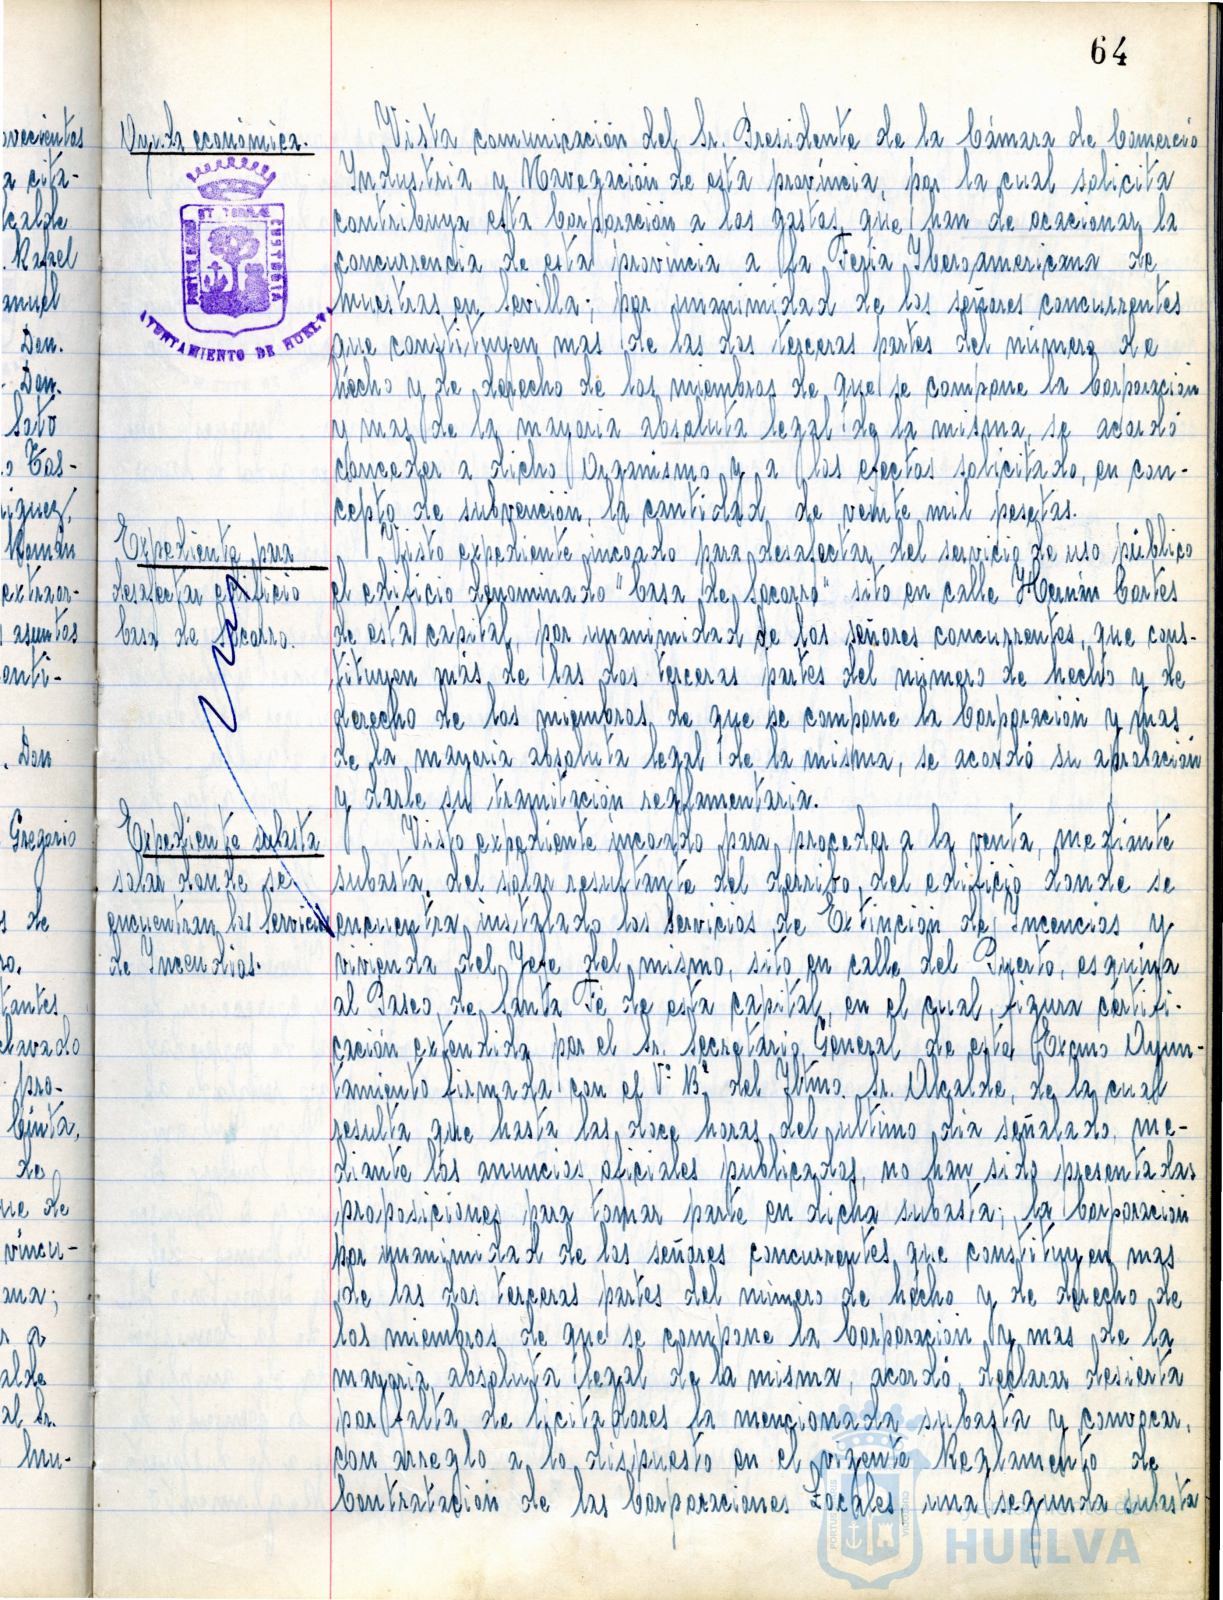 64
ovecientos
a cita-
lcalde
. Rafael
anuel
Don.
- Don.
Soto
o Cas-
iguez,
Román
extraor-
asuntos
onti-
. Don
Gregorio
s de
ro.
tantes
clavado
pro-
Cinta,
de
ue de
vincu-
ma;
r a
alde
al Sr.
hu-
Ayuda económica.
ET TERRAE
CUSTODIA
PORTUS MARIS
AYUNTAMIENTO DE HUELVA
Vista comunicación del Sr. Presidente de la Cámara de Comercio
Industria y Navegación de esta província, por la cual solicita
contribuya esta Corporación a los gastos que han de ocacionar la
concurrencia de esta província a la Feria Iberoamericana de
muestras en Sevilla; por unanimidad de los señores concurrentes
que constituyen mas de las dos terceras partes del número de
hecho y de derecho de los miembros de que se compone la Corporación
y mas de la mayoria absoluta legal de la misma, se acordó
conceder a dicho Organismo y a los efectos solicitado, en con-
cepto de subvención, la cantidad de veinte mil pesetas.
Expediente para
desafectar edificio
Casa de Socorro.
Visto expediente incoado para desafectar del servicio de uso público
el edificio denominado "Casa de Socorro" sito en calle Hernán Cortes
de esta capital, por unanimidad de los señores concurrentes, que cons-
tituyen más de las dos terceras partes del número de hecho y de
derecho de los miembros de que se compone la Corporación y mas
de la mayoria absoluta legal de la misma, se acordó su aprobación
y darle su tramitación reglamentaria.
Expediente subasta
solar donde se
encuentran los Servicios
de Incendios.
Visto expediente incoado para proceder a la venta, mediante
subasta, del solar resultante del derribo, del edificio donde se
encuentra instalado los Servicios de Extinción de Incencios y
vivienda del Jefe del mismo, sito en calle del Puerto, esquina
al Paseo de Santa Fé de esta capital, en el cual figura certifi-
cación extendida por el Sr. Secretario General de este Excmo Ayun-
tamiento firmada con el Vº Bº del Iltmo. Sr. Alcalde, de la cual
resulta que hasta las doce horas del ultimo dia señalado, me-
diante los anuncios oficiales publicados, no han sido presentadas
proposiciones para tomar parte en dicha subasta; la Corporación
por unanimidad de los señores concurrentes que constituyen mas
de las dos terceras partes del número de hecho y de derecho de
los miembros de que se compone la Corporación y mas de la
mayoria absoluta legal de la misma, acordó, declarar desierta
por falta de licitadores la mencionada subasta y convocar,
con arreglo a lo dispuesto en el vigente Reglamento de
Contratación de las Corporaciones Locales, una segunda subasta
HUELVA